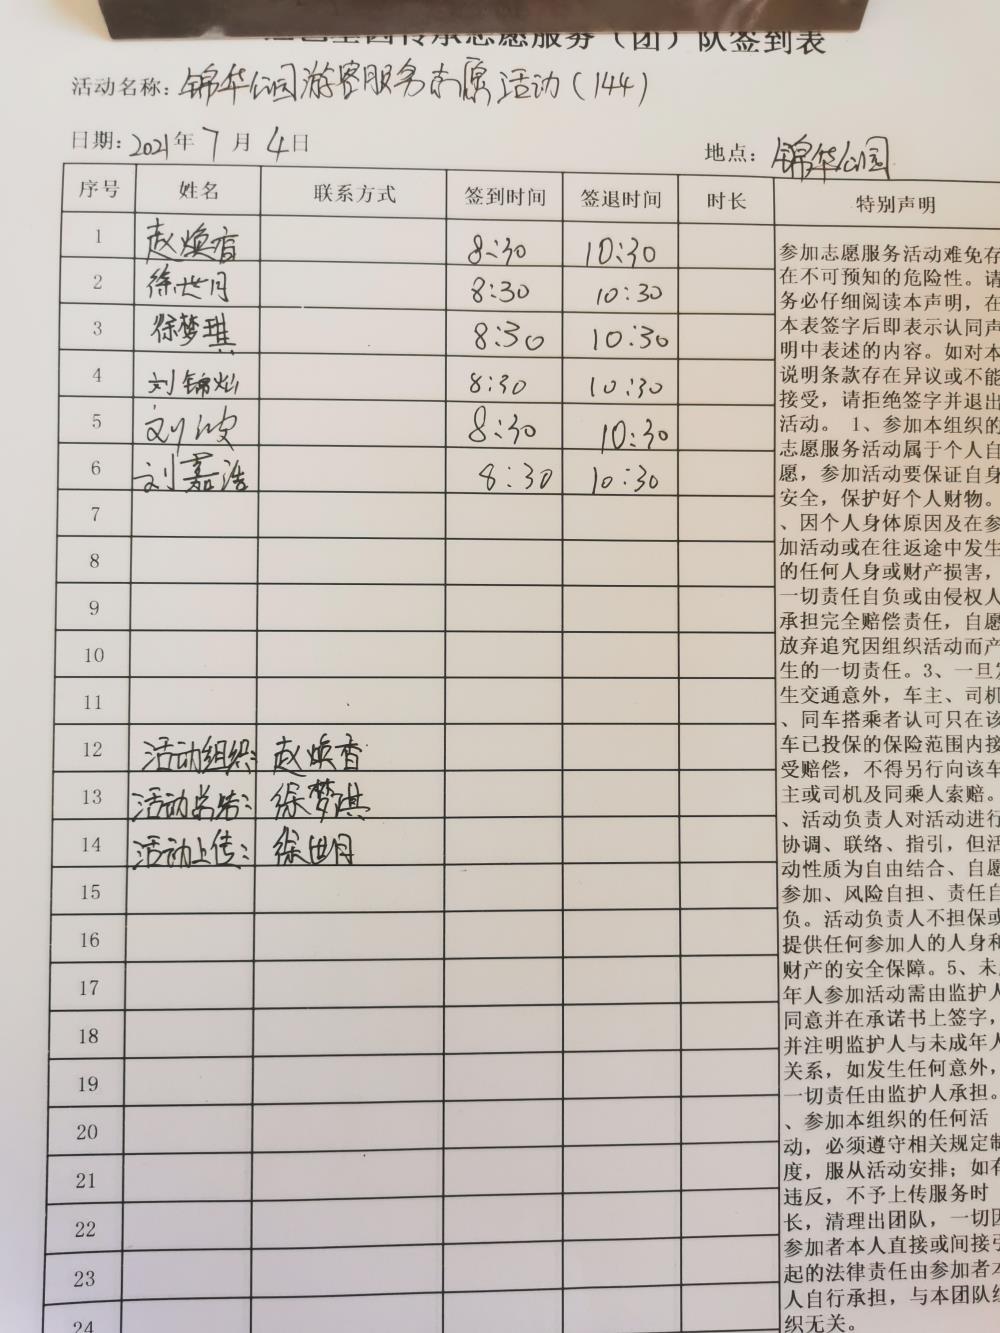 红色基因传承志愿服务（团）队签到表
活动名称：锦华公园游客服务志愿活动（144）
日期：2021年7月4日 地点：锦华公园
序号 姓名 联系方式 签到时间 签退时间 时长 特别声明
1 赵焕香 8:30 10:30
2 徐世月 8:30 10:30
3 徐梦琪 8:30 10:30
4 刘锦灿 8:30 10:30
5 刘 8:30 10:30
6 刘嘉浩 8:30 10:30
7
8
9
10
11
12 活动组织：赵焕香
13 活动总结：徐梦琪
14 活动上传：徐世月
15
16
17
18
19
20
21
22
23
24
参加志愿服务活动难免存
在不可预知的危险性。请
务必仔细阅读本声明，在
本表签字后即表示认同声
明中表述的内容。如对本
说明条款存在异议或不能
接受，请拒绝签字并退出
活动。 1、参加本组织的
志愿服务活动属于个人自
愿，参加活动要保证自身
安全，保护好个人财物。
、因个人身体原因及在参
加活动或在往返途中发生
的任何人身或财产损害，
一切责任自负或由侵权人
承担完全赔偿责任，自愿
放弃追究因组织活动而产
生的一切责任。3、一旦发
生交通意外，车主、司机
、同车搭乘者认可只在该
车已投保的保险范围内接
受赔偿，不得另行向该车
主或司机及同乘人索赔。
、活动负责人对活动进行
协调、联络、指引，但活
动性质为自由结合、自愿
参加、风险自担、责任自
负。活动负责人不担保或
提供任何参加人的人身和
财产的安全保障。5、未成
年人参加活动需由监护人
同意并在承诺书上签字，
并注明监护人与未成年人
关系，如发生任何意外，
一切责任由监护人承担。
、参加本组织的任何活
动，必须遵守相关规定制
度，服从活动安排；如有
违反，不予上传服务时
长，清理出团队，一切因
参加者本人直接或间接引
起的法律责任由参加者本
人自行承担，与本团队组
织无关。